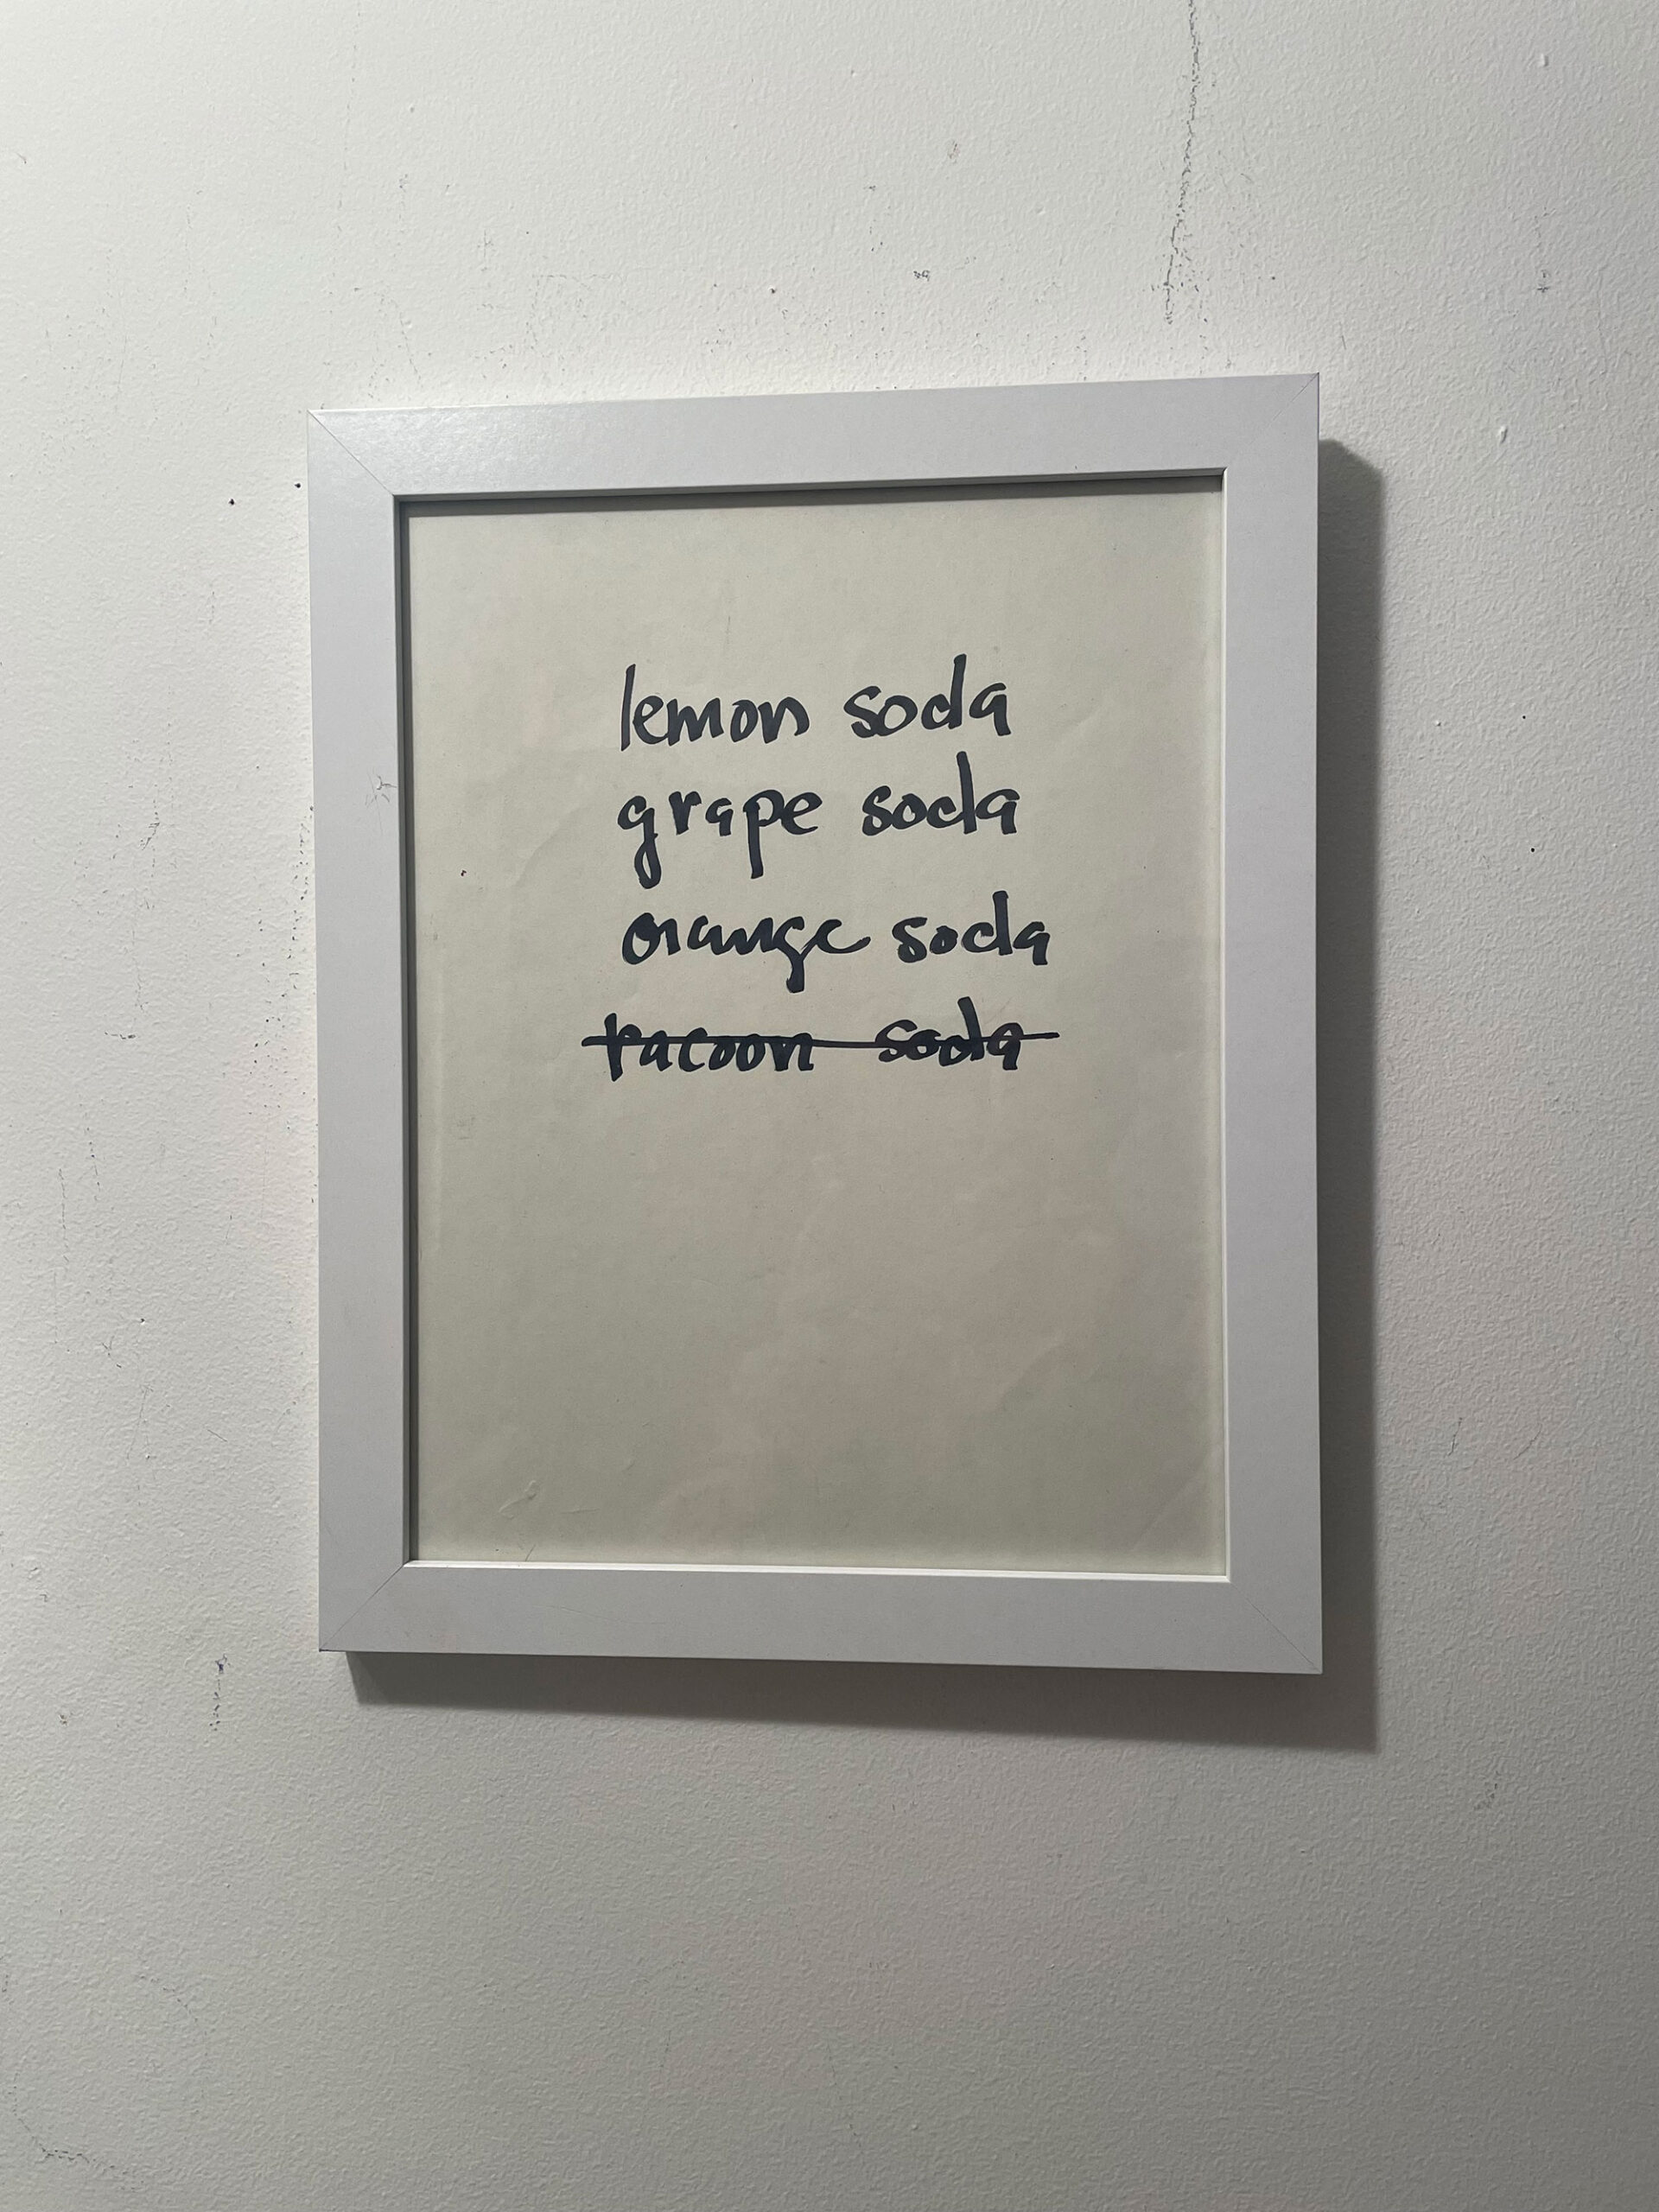 lemon soda
grape soda
orange soda
racoon soda